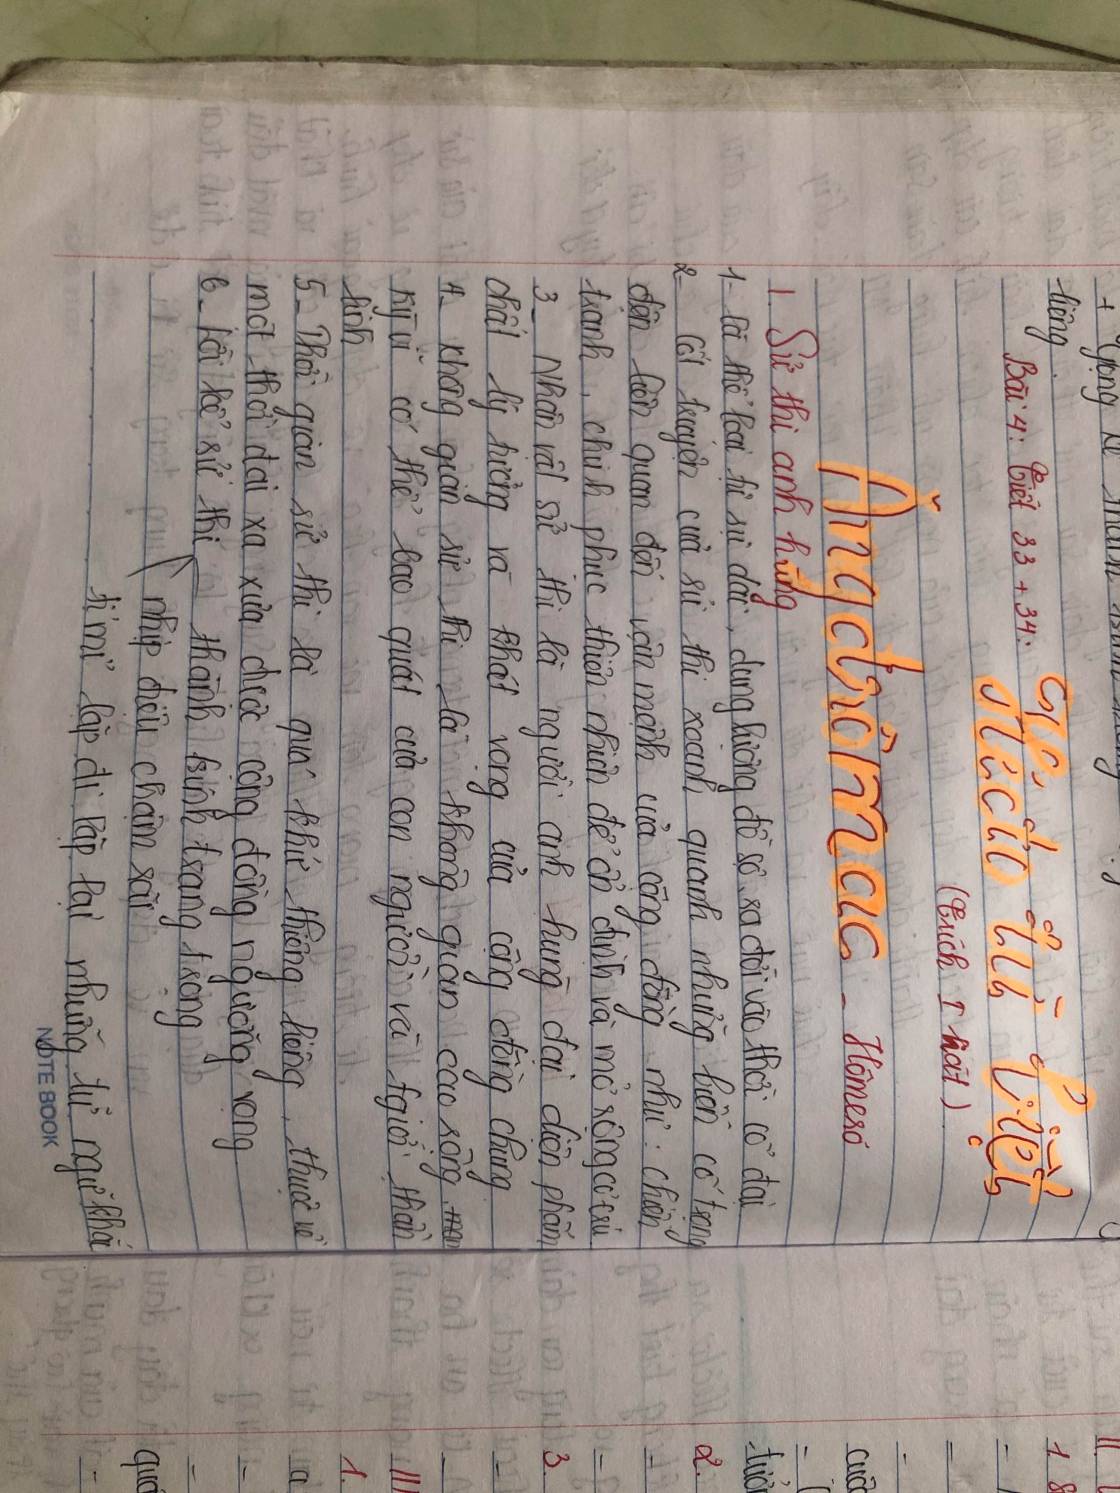 tiếng
Bài 4: Tiết 33 + 34:
Hécto từ biệt
(Trích I liát)
Ăngđrômac - Hômerơ
I. Sử thi anh hùng
1- là thể loại tự sự dài, dung lượng đồ sộ ra đời vào thời cổ đại
2- Cốt truyện của sử thi xoanh quanh những biến cố trọng
đại liên quan đến vận mệnh của cộng đồng như: chiến
tranh, chinh phục thiên nhiên để ổn định và mở rộng cư trú
3- Nhân vật sử thi là người anh hùng đại diện phẩm
chất lý tưởng và khát vọng của cộng đồng chung
4- không gian sử thi là không gian cao sông
kỳ vĩ có thể bao quát của con người và tgiới thần
linh
5- Thời gian sử thi là quá khứ thiêng liêng, thuộc về
một thời đại xa xưa được cộng đồng ngưỡng vọng
6- lời kể sử thi thành kính trang trọng
nhịp điệu chậm rãi
tỉ mỉ lặp đi lặp lại những từ ngữ khá
NOTE BOOK
II
1
2.
3.
III
1.
quá